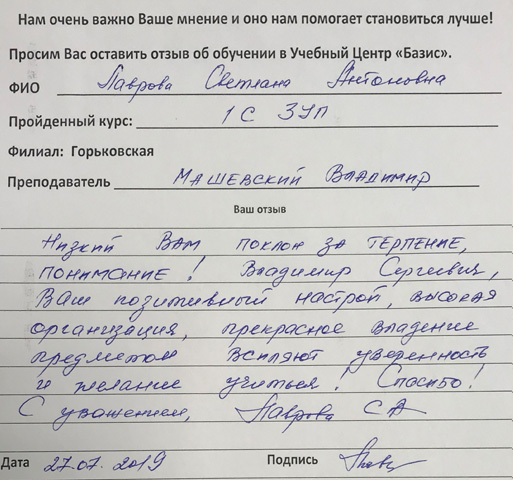 Нам очень важно Ваше мнение и оно нам помогает становиться лучше!
Просим Вас оставить отзыв об обучении в Учебный Центр «Базис».
ФИО Лаврова Светлана Антоновна
Пройденный курс: 1С ЗУП
Филиал: Горьковская
Преподаватель Машевский Владимир
Ваш отзыв
Низкий Вам поклон за терпение,
понимание! Владимир Сергеевич,
Ваш позитивный настрой, высокая
организация, прекрасное владение
предметом вселяют уверенность
и желание учиться! Спасибо!
С уважением, Лаврова СА
Дата 27.07.2019 Подпись